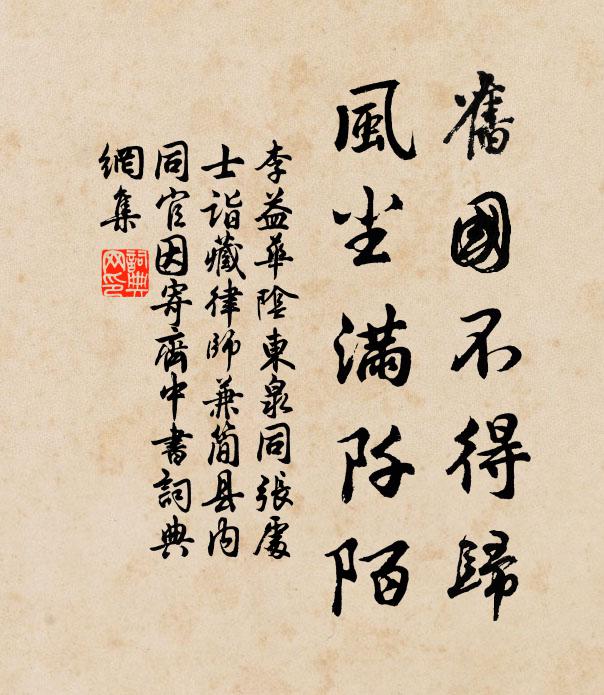 舊國不得歸
風尘滿阡陌
李益華陰東泉同張處
士詣藏律師兼简县內
同官因寄齊中書詞典
網集
詞典
网印